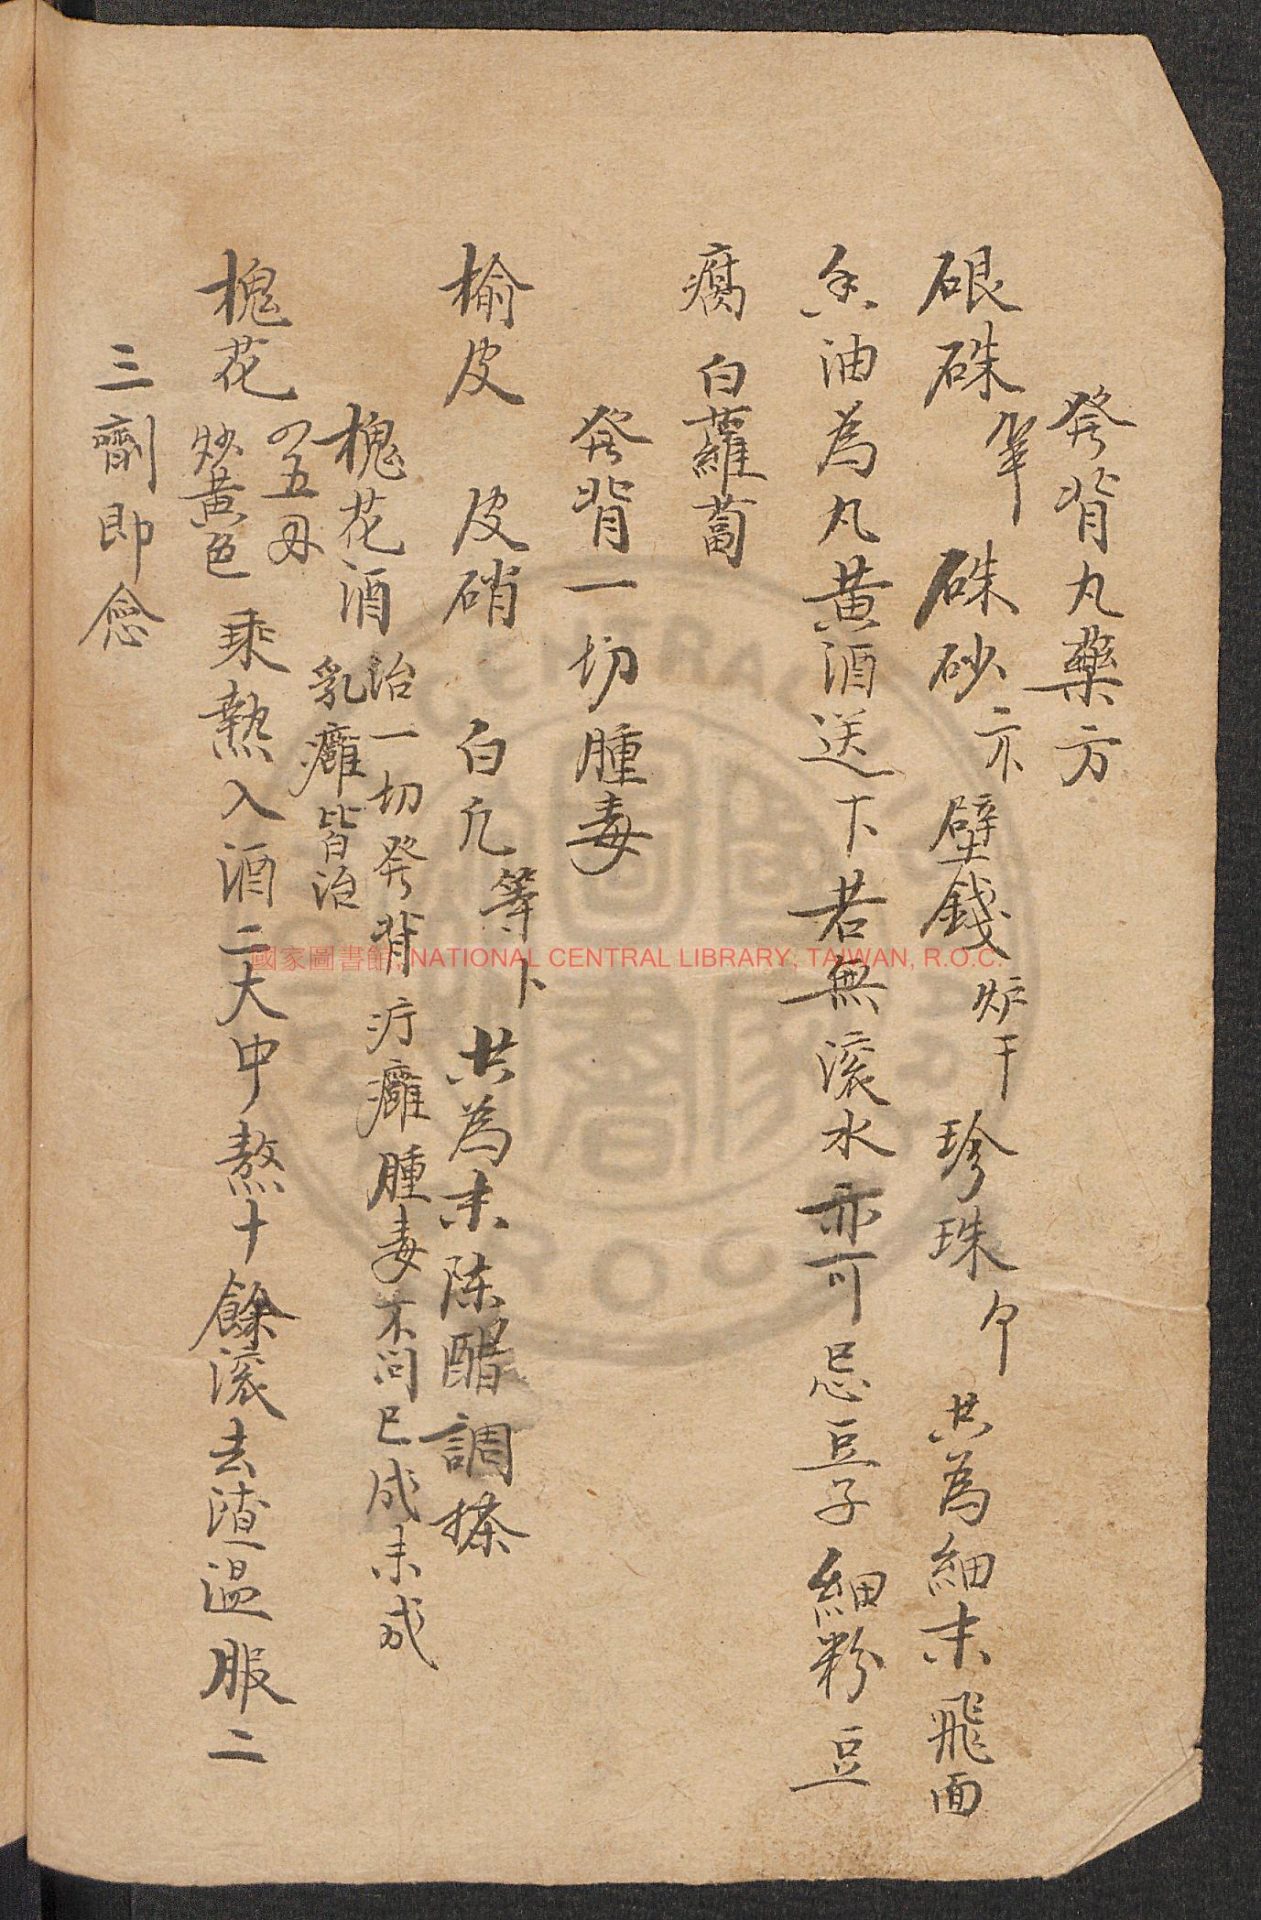 発背丸藥方
硍硃 硃砂 壁錢炉干 珍珠 共為細末飛面
香油為丸黃酒送下若無滾水亦可忌豆子細粉豆
腐 白蘿蔔
発背一切腫毒
榆皮 皮硝 白凡等卜 共為末陈醋調搽
槐花酒 治一切発背疔癰腫毒不問已成未成
乳癰皆治
槐花 四五 炒黃色 乘熱入酒二大中熬十餘滚去渣温服二
三劑即愈
國家圖書館, NATIONAL CENTRAL LIBRARY, TAIWAN, R.O.C.